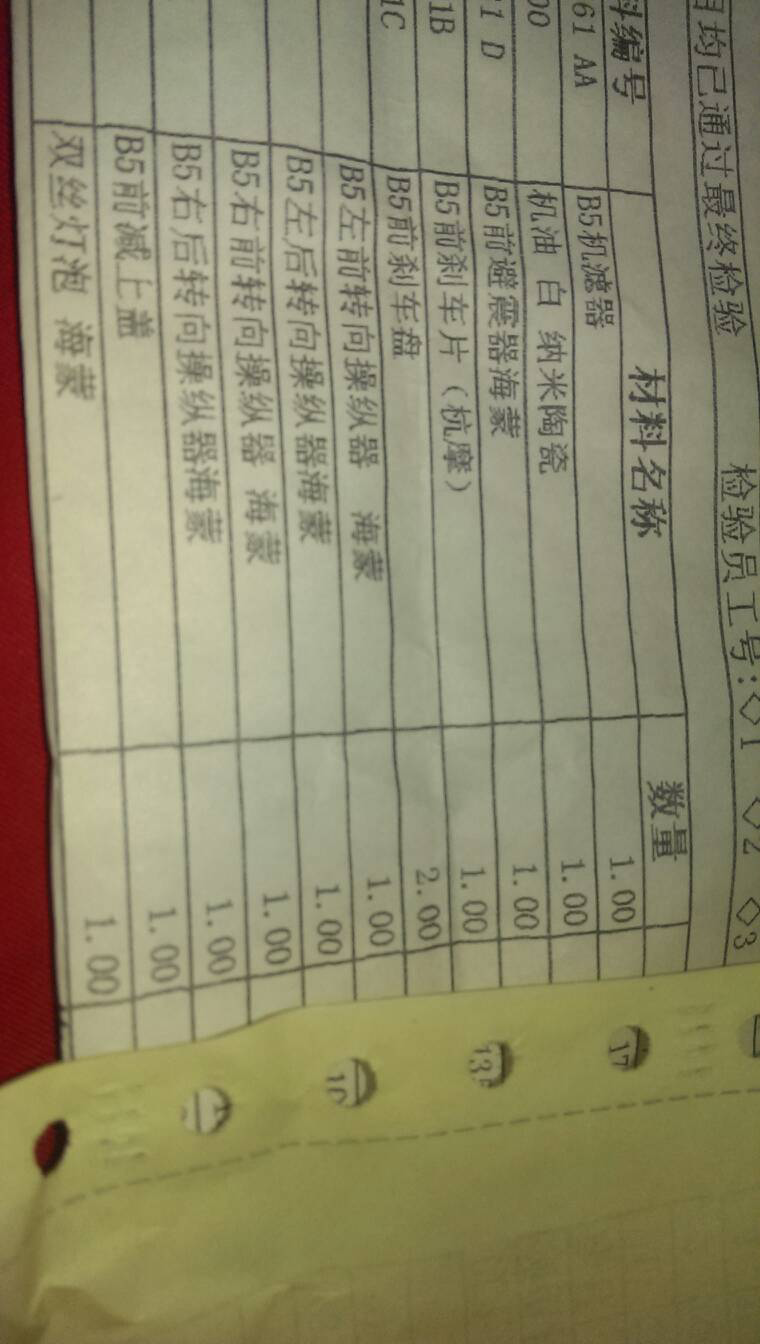 目均已通过最终检验 检验员工号:◇1 ◇2 ◇3
料编号 材料名称 数量
61 AA B5机滤器 1.00
00 机油 白 纳米陶瓷 1.00
1 D B5前避震器海蒙 1.00
1B B5前刹车片（杭摩） 1.00
1C B5前刹车盘 2.00
B5左前转向操纵器 海蒙 1.00
B5左后转向操纵器海蒙 1.00
B5右前转向操纵器 海蒙 1.00
B5右后转向操纵器海蒙 1.00
B5前减上盖 1.00
双丝灯泡 海蒙 1.00
17
13
10